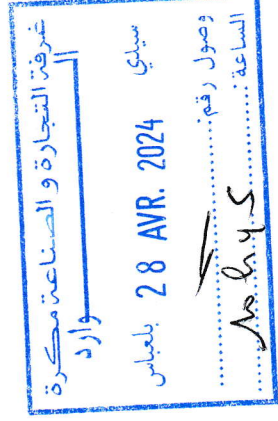 غرفة التجارة و الصناعة مكرة
الـــوارد
سيدي بلعباس 28 AVR. 2024
وصول رقم:
الساعة: